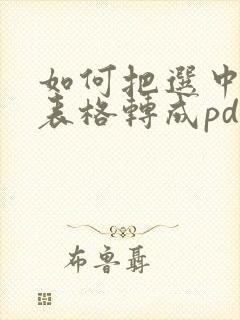 如何把選中
表格轉成pd
布魯聶